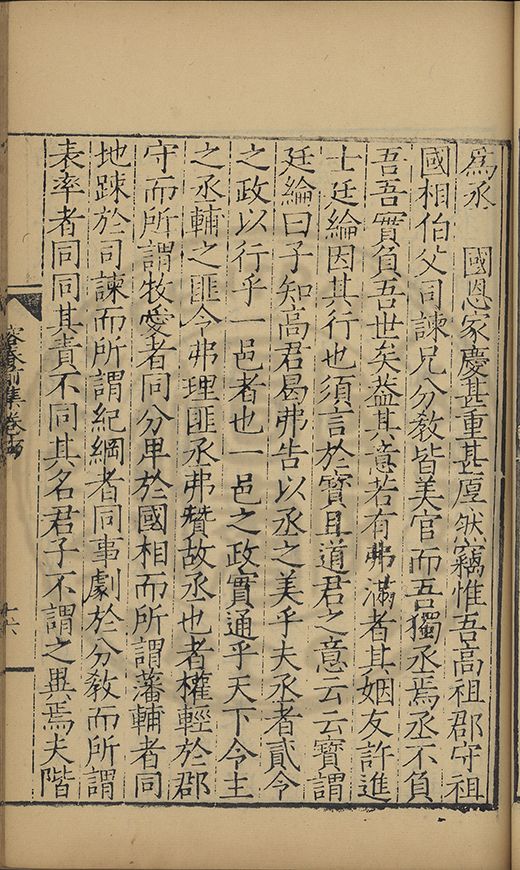 爲丞　國恩家慶甚重甚厚然竊惟吾高祖郡守祖
國相伯父司諫兄分敎皆美官而吾獨丞焉丞不負
吾吾實負吾世矣蓋其意若有弗滿者其姻友許進
士廷綸因其行也須言於寳且道君之意云云寳謂
廷綸曰子知高君曷弗告以丞之美乎夫丞者貳令
之政以行乎一邑者也一邑之政實通乎天下令主
之丞輔之匪令弗理匪丞弗贊故丞也者權輕於郡
守而所謂牧愛者同分卑於國相而所謂藩輔者同
地踈於司諫而所謂紀綱者同事劇於分敎而所謂
表率者同同其責不同其名君子不謂之異焉夫階
容春前集卷十四
十六